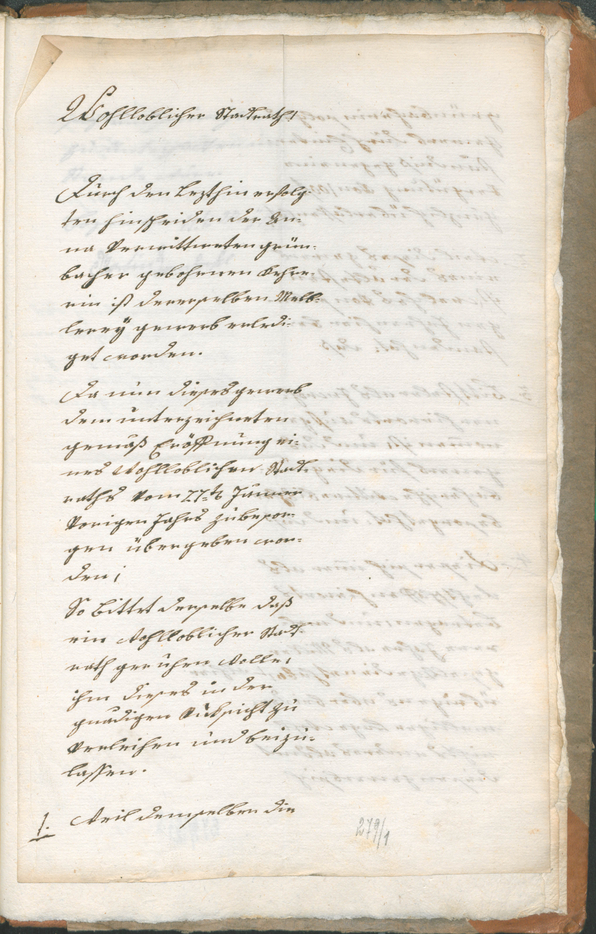 Wohlloblicher Stadtrath!
Durch den lezthin erfolg-
ten hinscheiden der An-
na Verwittweten grün-
bacher gebohrnen
rin ist derenselben Melb-
lereÿ gewerb erledi-
get worden.
Da nun dieses gewerb
dem unterzeichneten
gemäß Eröffnung ei-
nes Wohlloblichen Stadt-
raths vom 27ten Jänner
Vorigen Jahrs zu besor-
gen übergeben wor-
den;
So bittet derselbe daß
ein Wohlloblicher Stadt-
rath geruhen wolle,
ihm dieses in der
gnädigen Rüksicht zu
Verleihen und beizu-
lassen.
1. Weil demselben die
279/1